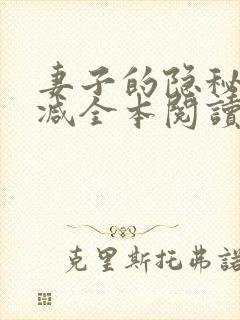 妻子的隐秘
减全本閱讀
克里斯托弗諾